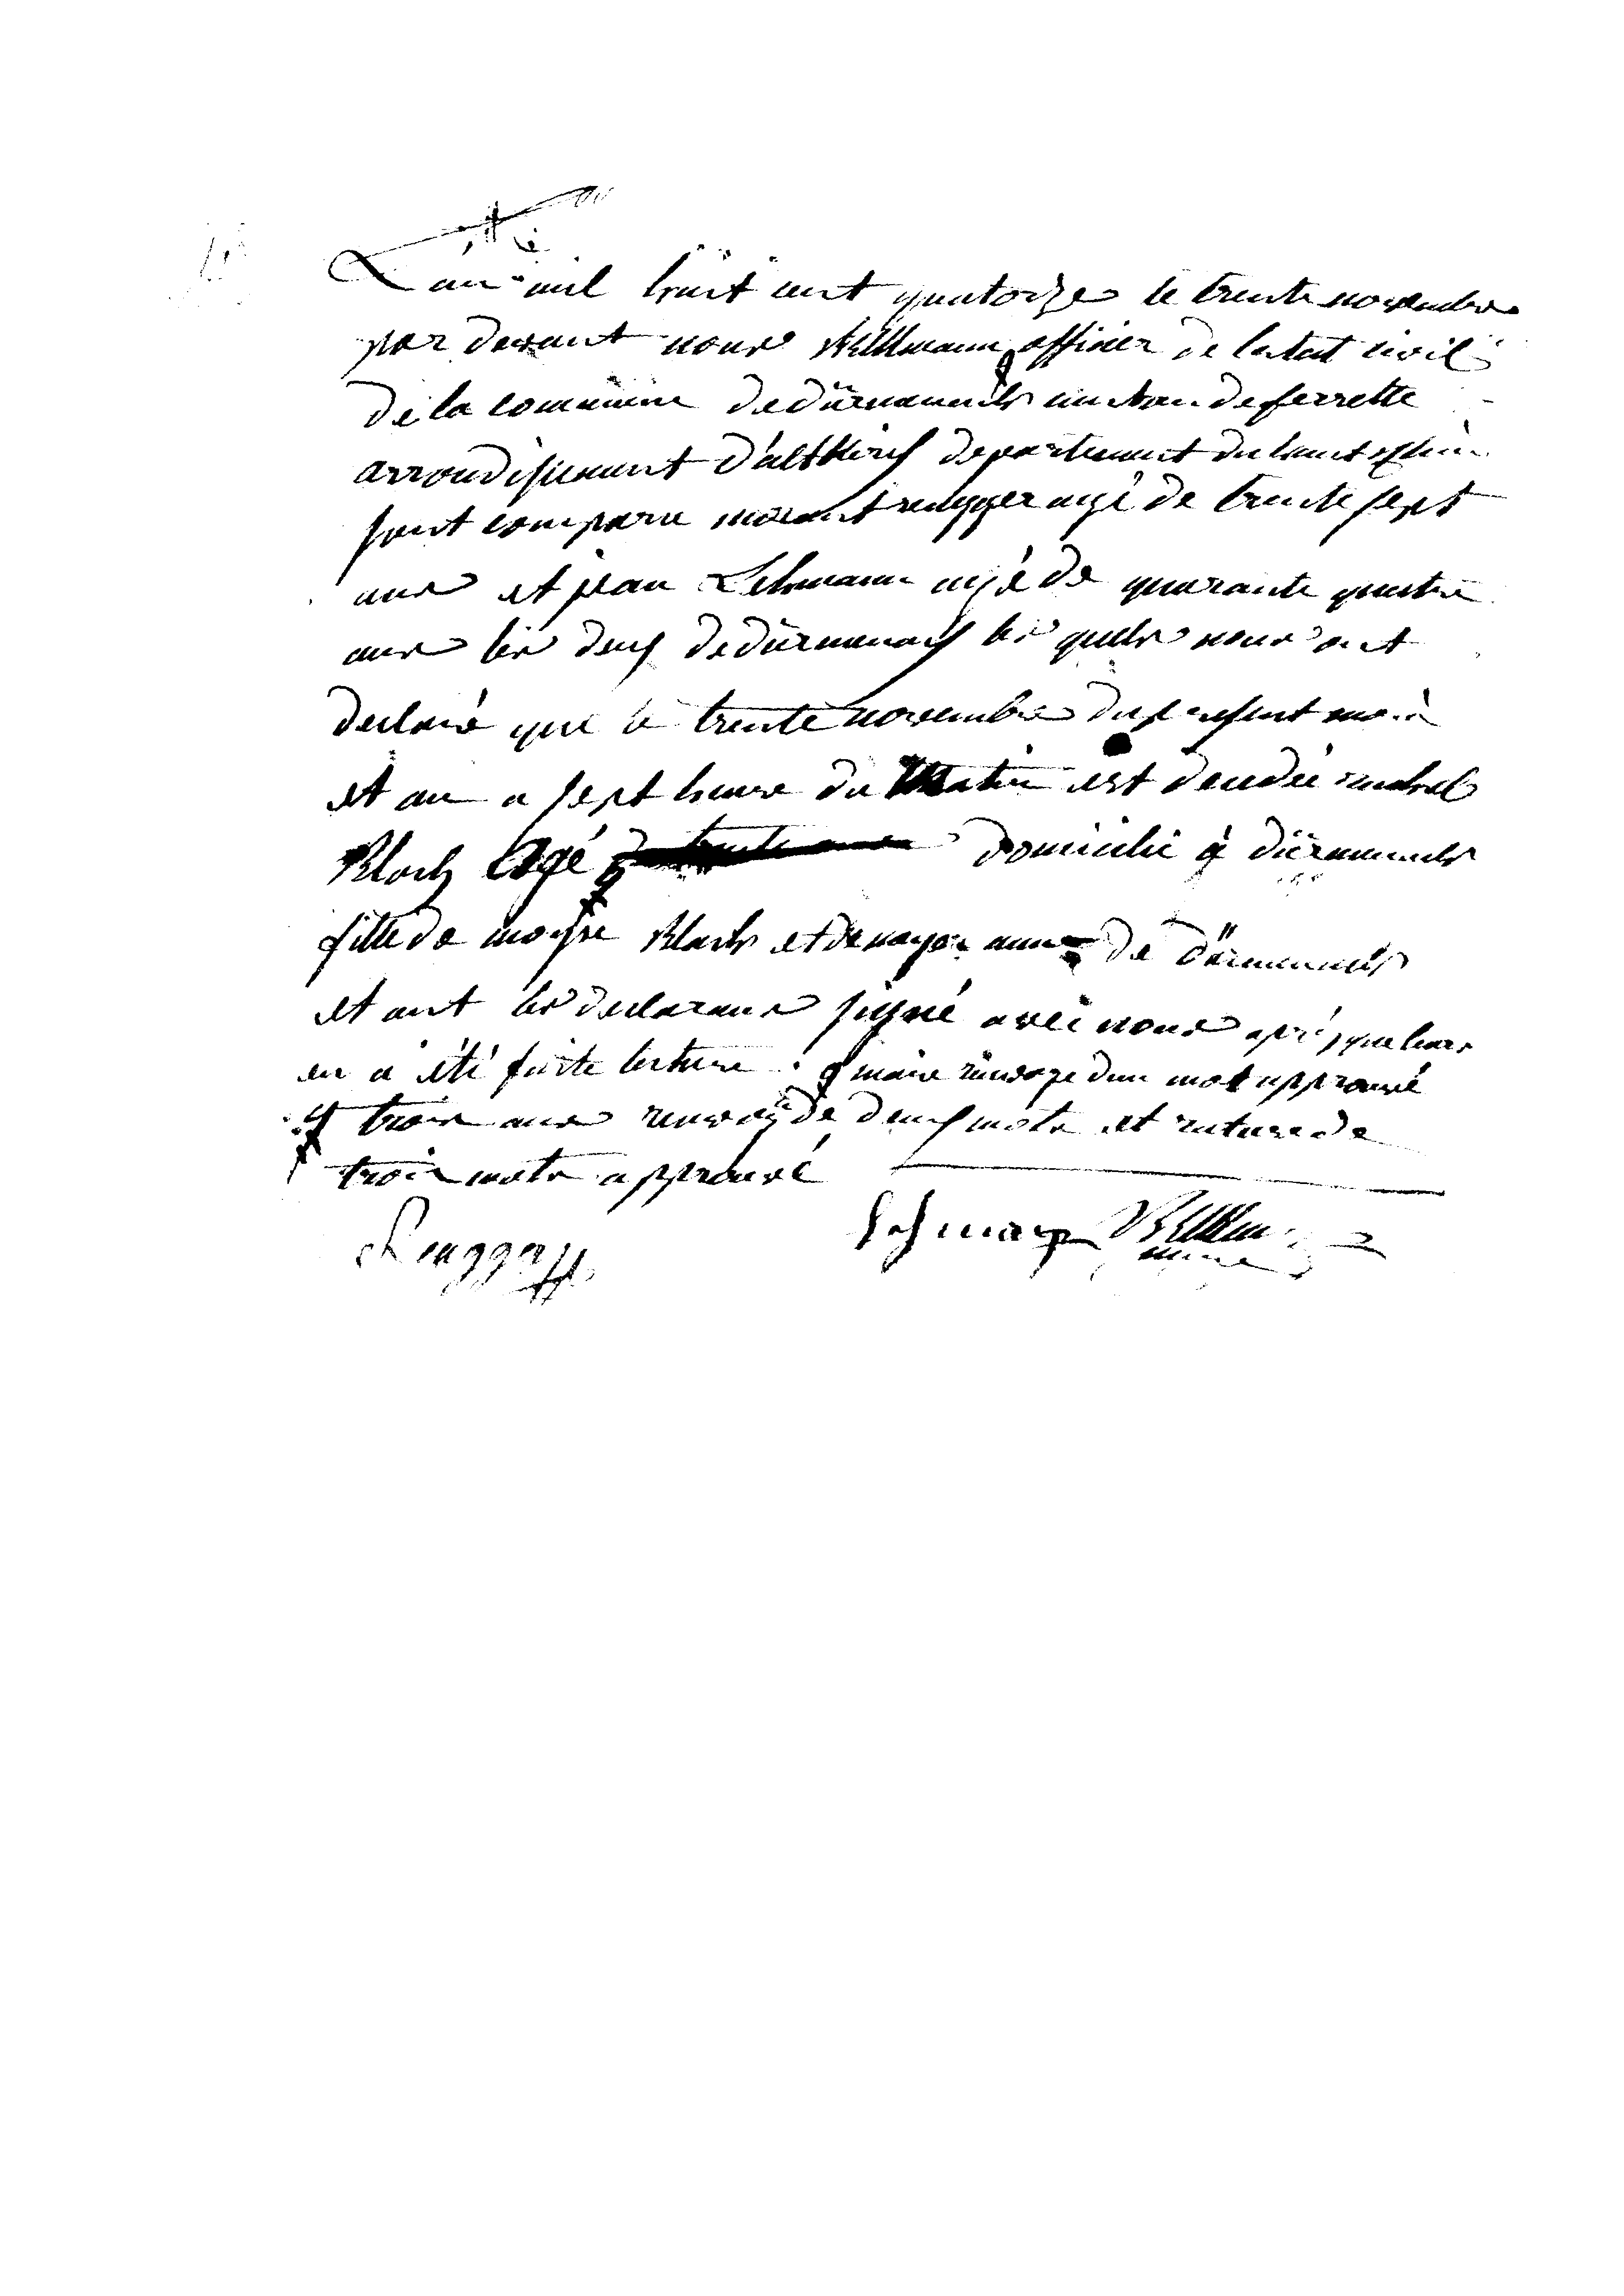 L'an mil huit cent quatorze le trente novembre
par devant nous officier de letat civil
de la commune de dürmenach canton de ferrette
arrondissement d'altkirch departement du haut Rhin
sont comparu rengger agé de trente sept
ans et jean Lehmann agé de quarante quatre
ans les deux de dürmenach les quels nous ont
declaré que le trente novembre du present mois
et an a sept heure du Matin est decedée rachel
Bloch Agé domicilié à dürmenach
fille de moyse Bloch et de de dürmenach
et ont les declarans signé avec nous aprés que leurs
en a été faite lecture. maire renvoye d'un mot approuvé
trois ans renvoy de deux mots et rature de
trois mots approuvé
Rengger Lehmann
maire